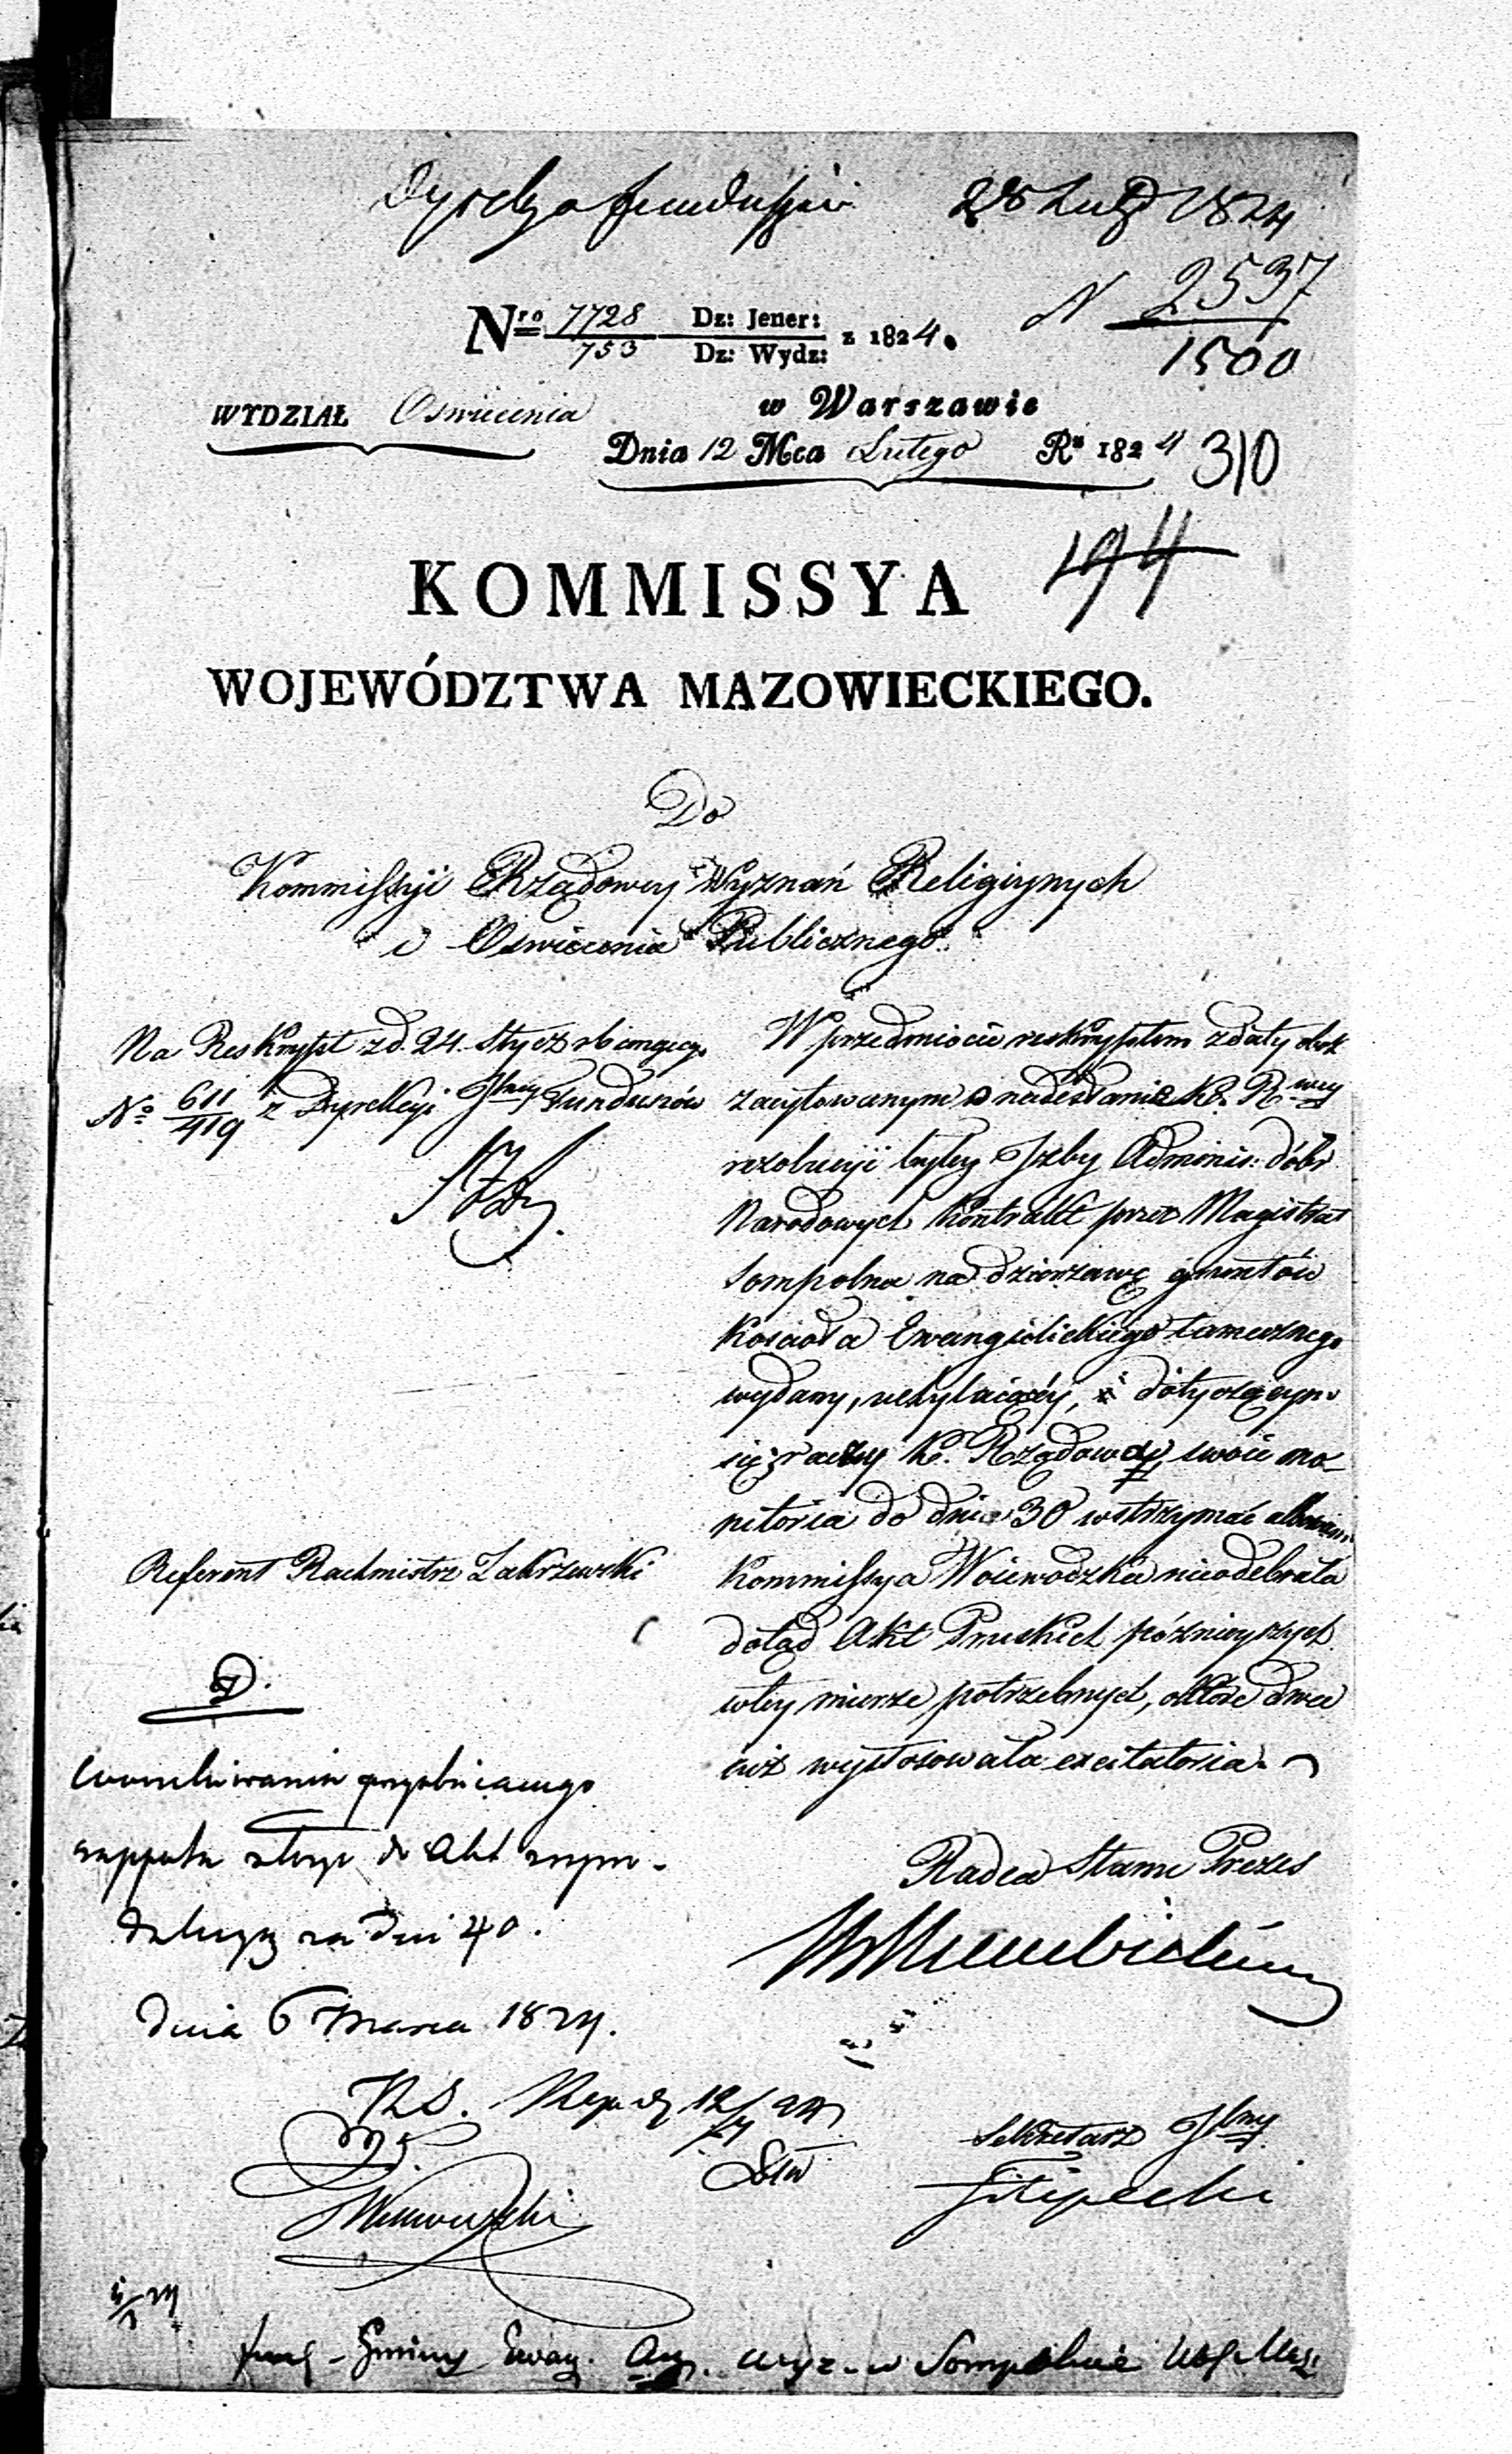 Dyrekcya funduszów 28 Lut 1824
N 2537
1500
Nro 7728 Dz: Jener: z 1824.
753 Dz: Wydz:
WYDZIAŁ Oswiecenia
w Warszawie
Dnia 12 Mca Lutego Ru 1824
310
194
KOMMISSYA
WOJEWÓDZTWA MAZOWIECKIEGO.
Do
Kommissyi Rządowey Wyznań Religiynych
i Oswiecenia Publicznego.
Na Reskrypt z d. 24. Stycz. r b
No 611/419 z Dyrekcyi Jlney Funduszów
W przedmiocie reskryptem z daty obok
zacytowanym o nadesłanie K. Rwey
rezolucyi byłey Izby Adminis: dóbr
Narodowych Kontrakt przez Magistrat
Sompolna na dzierzawę gruntów
Kościoła Ewangielickiego tamecznego
wydany, uchylaiącey, i dotyczącym
się, raczy K. Rządowa swoie mo-
nitoria do dnia 30 wstrzymać albowiem
Kommissya Woiewodzka nieodebrała
dotąd Akt Pruskich póznieyszych
w tey mierze potrzebnych, o które dwa
iuż wystosowała excitatoria.
Referent Rachmistrz Zakrzewski
D.
W oczekiwaniu przyobiecanego
rapportu złożyć do Akt
za dni 40.
dnia 6 Marca 1824.
Radca Stanu Prezes
Sekretarz Jlny
Filipecki
Gminy Ewang. Aug. wyz. w Sompolnie